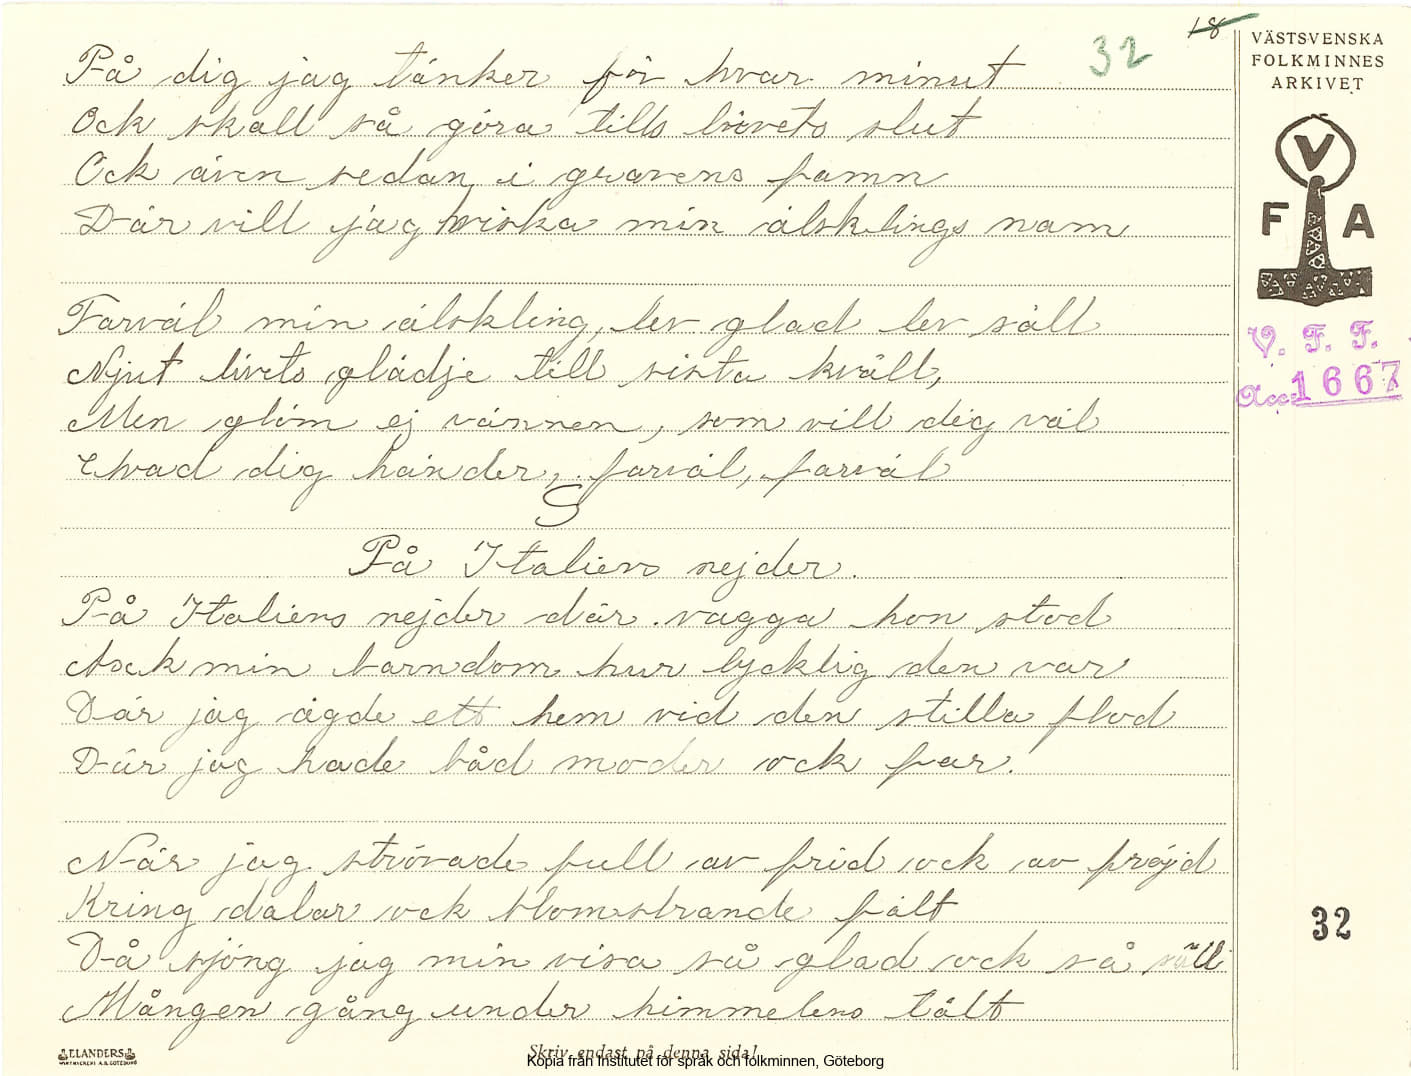 18
32
VÄSTSVENSKA
FOLKMINNES
ARKIVET
V
F A
V. F. F.
Acc. 1667
På dig jag tänker för hvar minut
Ock skall så göra tills livets slut
Ock även sedan i gravens famn
Där vill jag hviska min älsklings namn
Farväl min älskling, lev glad lev säll
Njut livets glädje till sista kväll,
Men glöm ej vännen, som vill dig väl
Ehvad dig händer, farväl, farväl
S
På Italiens nejder.
På Italiens nejder där vagga hon stod
Ack min barndom hur lycklig den var
Där jag ägde ett hem vid den stilla flod
Där jag hade båd moder ock far.
När jag strövade full av frid ock av fröjd
Kring dalar ock blomstrande fält
Då sjöng jag min visa så glad ock så säll
Mången gång under himmelens tält
32
ELANDERS
Skriv endast på denna sida!
Kopia från Institutet för språk och folkminnen, Göteborg